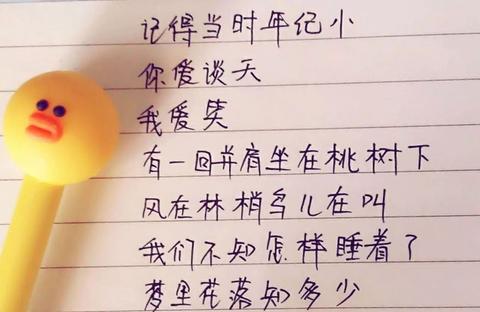 记得当时年纪小
你爱谈天
我爱笑
有一回并肩坐在桃树下
风在林梢鸟儿在叫
我们不知怎样睡着了
梦里花落知多少